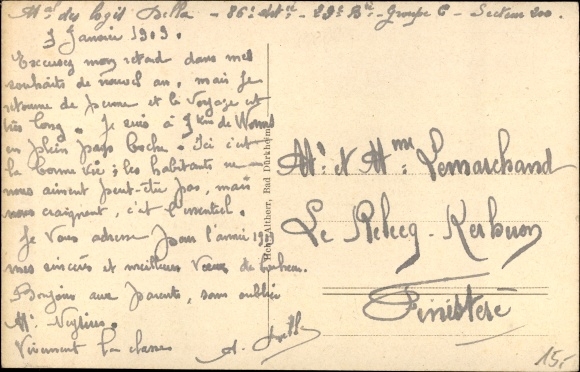 Mal des logis Della - 86e Art ie - 29e Bie - Groupe C - Secteur 200.
7 Janvier 1919.
Excusez mon retard dans mes
souhaits de nouvel an, mais je
retourne de perme et le voyage est
très long. Je suis à 7 Km de Worms
en plein pays boche. Ici c'est
la bonne vie; les habitants ne
nous aiment peut-être pas, mais
nous craignent, c'est l'essentiel.
Je vous adresse pour l'année 1919
mes sincères et meilleurs vœux de bonheur.
Bonjour aux parents, sans oublier
Mr
Vivement la classe
A. Della
Altherr, Bad Dürkheim
Mr. et Mme Lemarchand
Le Relecq-Kerhuon
Finistère
15.-